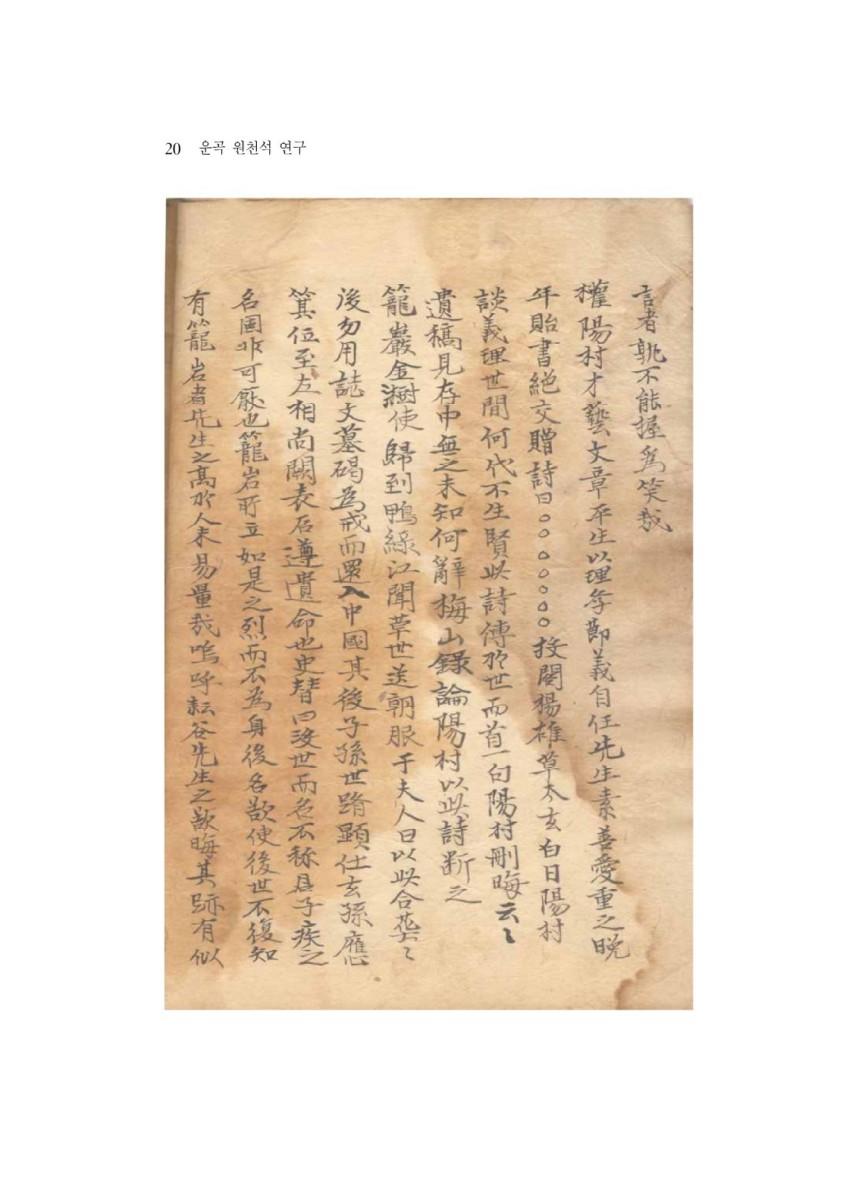 20 운곡 원천석 연구
言者孰不能握爲笑哉
權陽村才藝文章平生以理学節義自任先生素善愛重之晚
年貽書絶交贈詩曰○○○○○○○投閣揚雄草太玄白日陽村
談義理世間何代不生賢此詩傳於世而首一句陽村刪晦云〻
遺稿見存中無之未知何辭梅山錄論陽村以此詩断之
籠巖金澍使歸到鴨綠江聞革世送朝服于夫人曰以此合葬〻
後勿用誌文墓碣爲戒而還入中國其後子孫世躋顯仕玄孫應
箕位至左相尚闕表石遵遺命也史替曰沒世而名不称君子疾之
名固非可厭也籠岩所立如是之烈而不为身後名欲使後世不復知
有籠岩者先生之高於人未易量哉嗚呼耘谷先生之欲晦其跡有似